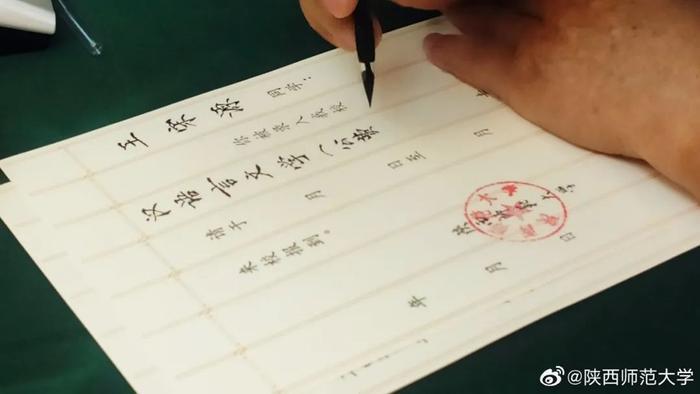 王 同学:
你被录入我校
汉语言文学(公费
请于 月 日至 月
来校报到。
年 月 日
@陕西师范大学